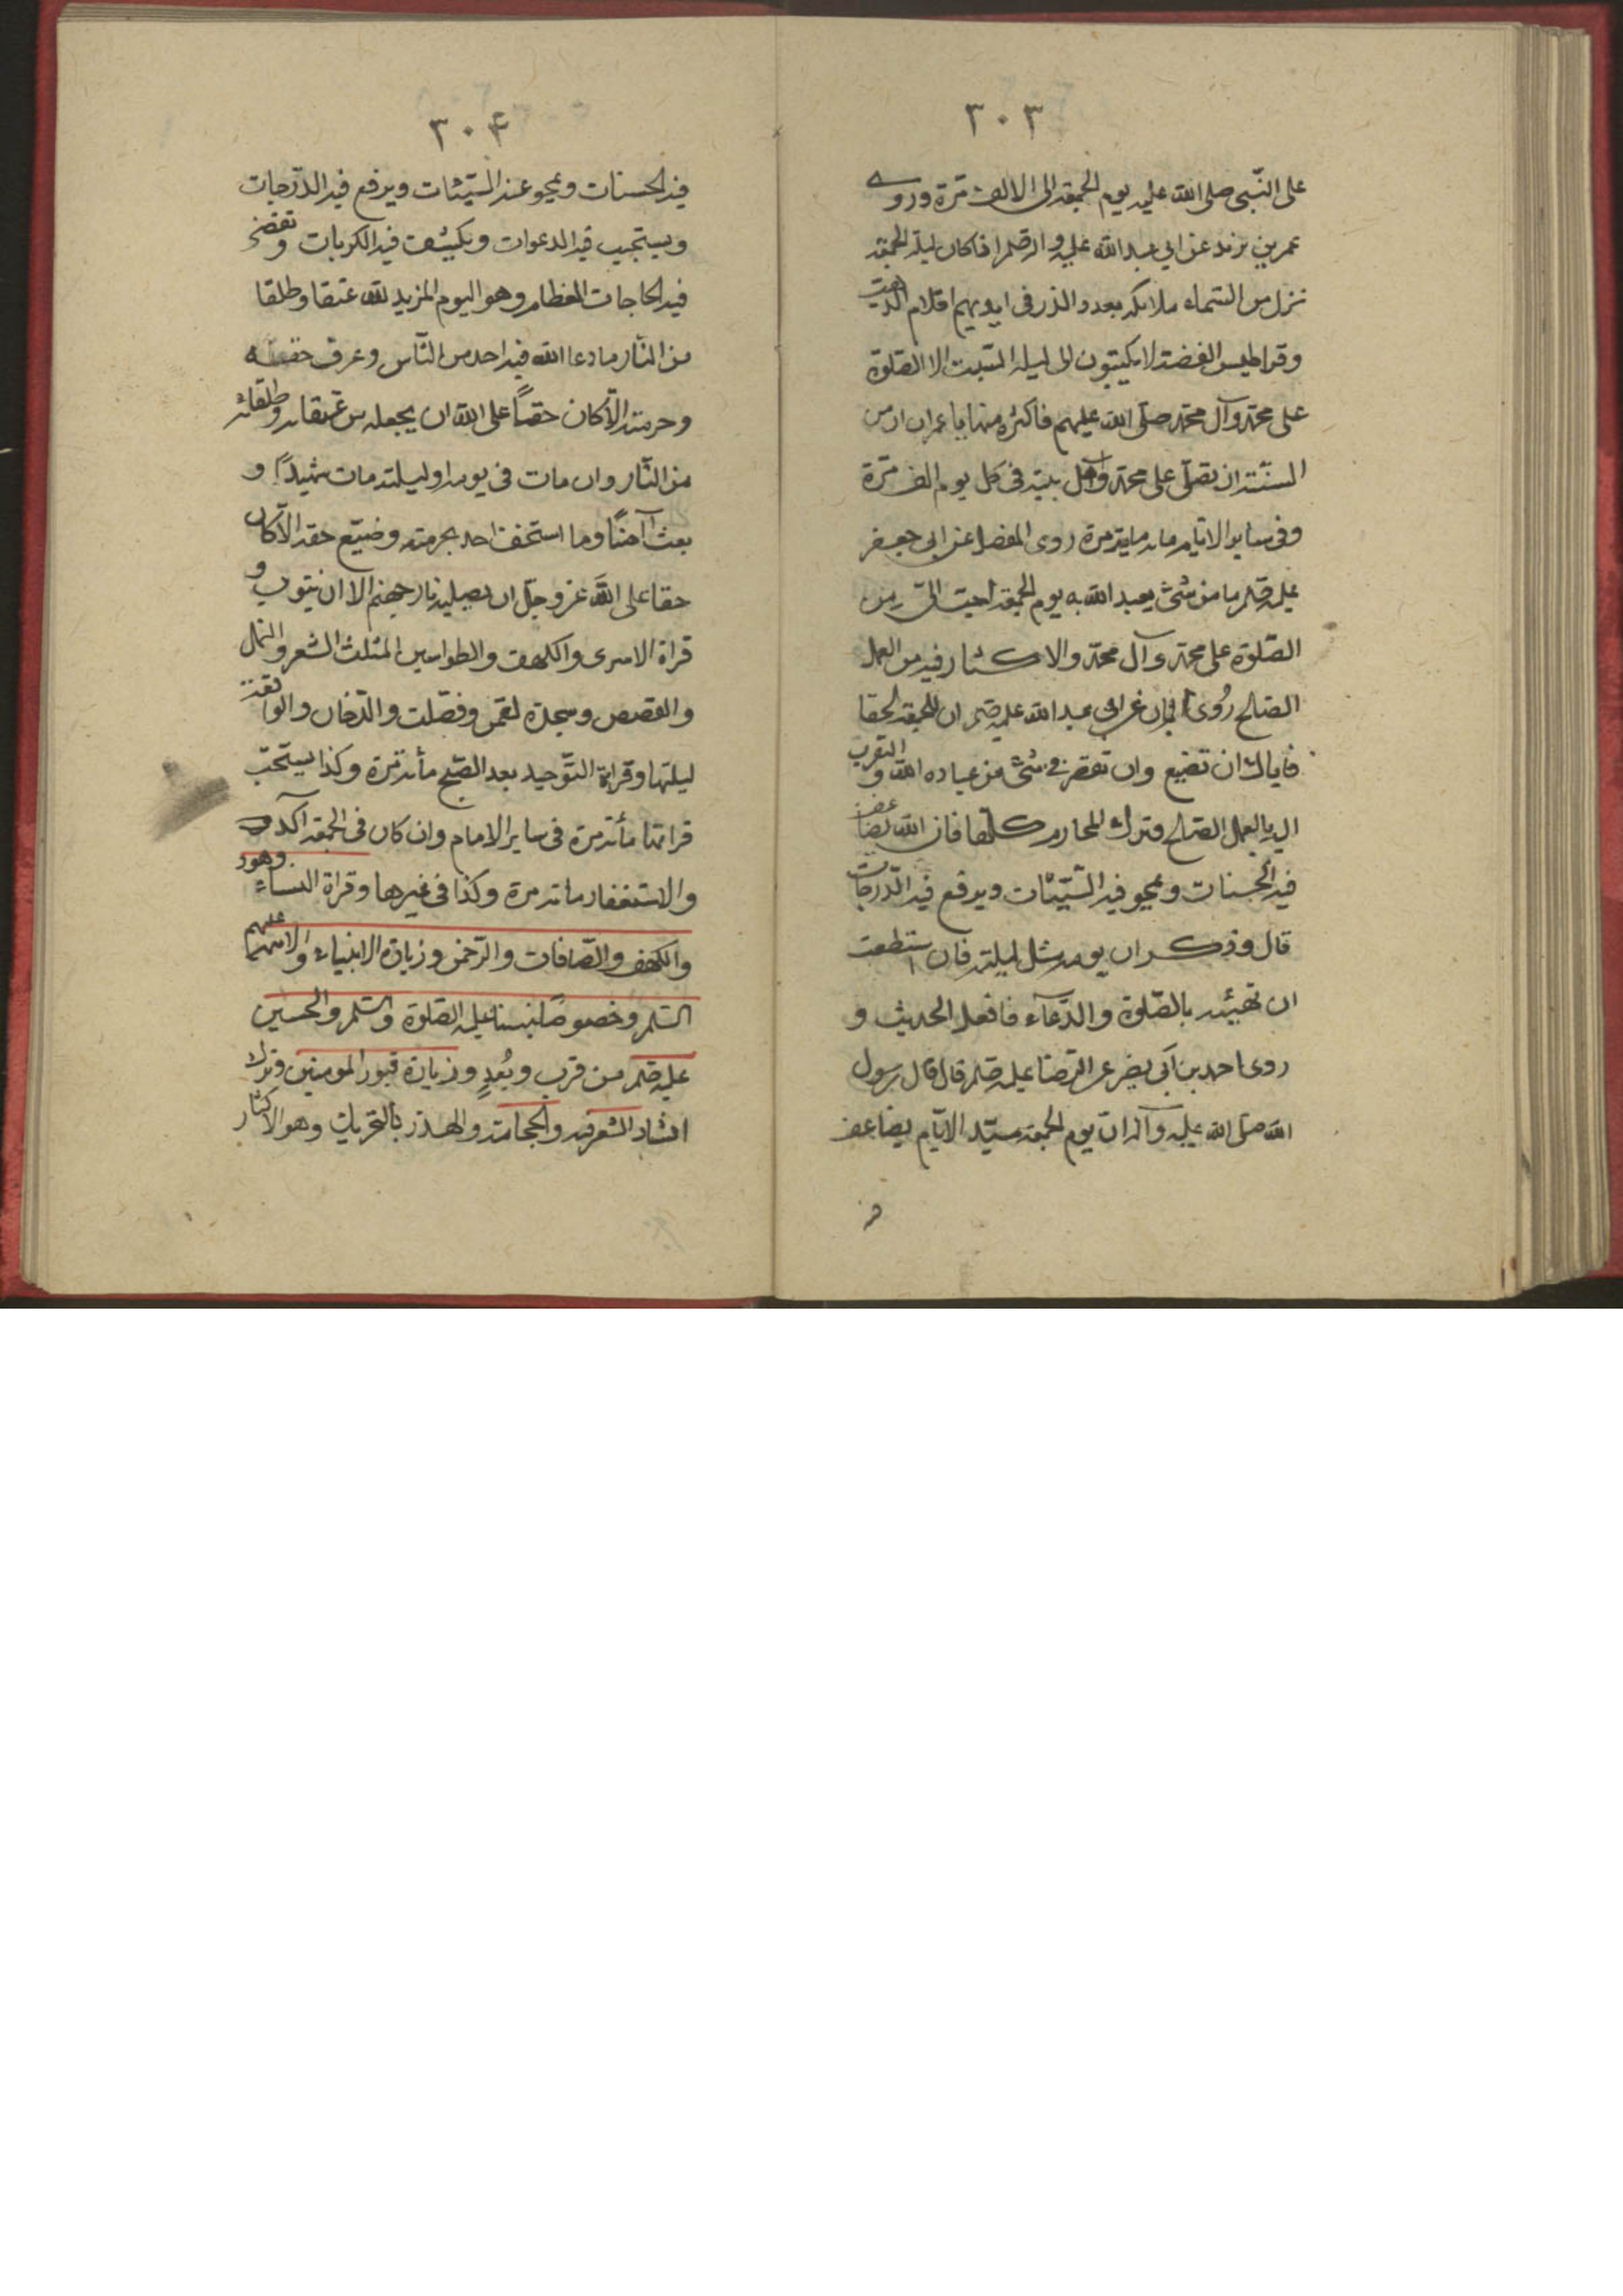 ٣٠٣
على النّبى صلى الله عليه يوم الجمعة الى الالف مرّة وروى
عمر بن يزيد عن ابى عبد الله عليه اذا كان ليلة الجمعة
نزل من السّماء ملائكة بعدد الذر فى ايديهم اقلام الذهب
وقراطيس الفضة لا يكتبون الى ليلة السّبت الا الصّلوة
على محمّد وآل محمّد صلّى الله عليهم فاكثر منها يا عمر ان من
السنّة ان تصلّى على محمّد واهل بيته فى كل يوم الف مرّة
وفى ساير الايّام مائة مرة روى المفضل عن ابى جعفر
عليه السّلم ما من شئ يعبد الله به يوم الجمعة احبّ الىّ من
الصّلوة على محمّد وآل محمّد والاكثار فيه من العمل
الصّالح رُوى ابان عن ابى عبد الله عليه السّلم ان للجمعة لحقا
فاياك ان تضيع وان تقصر فى شئ من عبادة الله والتقرب
اليه بالعمل الصّالح وترك المحارم كلّها فان الله يضاعف
فيه الحسنات ويمحو فيه السّيّئات ويرفع فيه الدّرجات
قال وذكر ان يومه مثل ليلته فان استطعت
ان تحييه بالصّلوة والدّعاء فافعل الحديث و
روى احمد بن ابى نصر عن الرّضا عليه السّلم قال قال رسول
الله صلى الله عليه وآله ان يوم الجمعة سيّد الايّام يضاعف
٣٠۴
فيه الحسنات ويمحو عنه السّيّئات ويرفع فيه الدّرجات
ويستجيب فيه الدعوات ويكشف فيه الكربات وتقضى
فيه الحاجات العظام وهو اليوم المزيد لله عتقا وطلقا
من النّار ما دعا الله فيه احد من النّاس وعرف حقه
وحرمته الّا كان حقّاً على الله ان يجعله من عتقائه وطلقائه
من النّار وان مات فى يومه او ليلته مات شهيداً و
بعث آمناً وما استخف احد بحرمته وضيّع حقه الّا كان
حقا على الله عز وجلّ ان يصليه نار جهنم الا ان يتوب و
قراة الاسرى والكهف والطواسين الثلث الشعر والنمل
والقصص وسجدة لقمن وفصّلت والدّخان والواقعة
ليلتها وقراءة التّوحيد بعد الصّبح مأة مرّة وكذا يستحبّ
قرائتها مأة مرة فى ساير الايام وان كان فى الجمعة آكد
والاستغفار مائة مرة وكذا فى غيرها وقراة النساء وهود
والكهف والصّافات والرّحمن وزيارة الانبياء والائمة عليهم
السّلم وخصوصًا نبينا عليه الصّلوة والسّلم والحسين
عليه السّلم من قرب وبُعدٍ وزيارة قبور المومنين وترك
انشاد الشعر فيه والحجامة والهذر وهو الاكثار